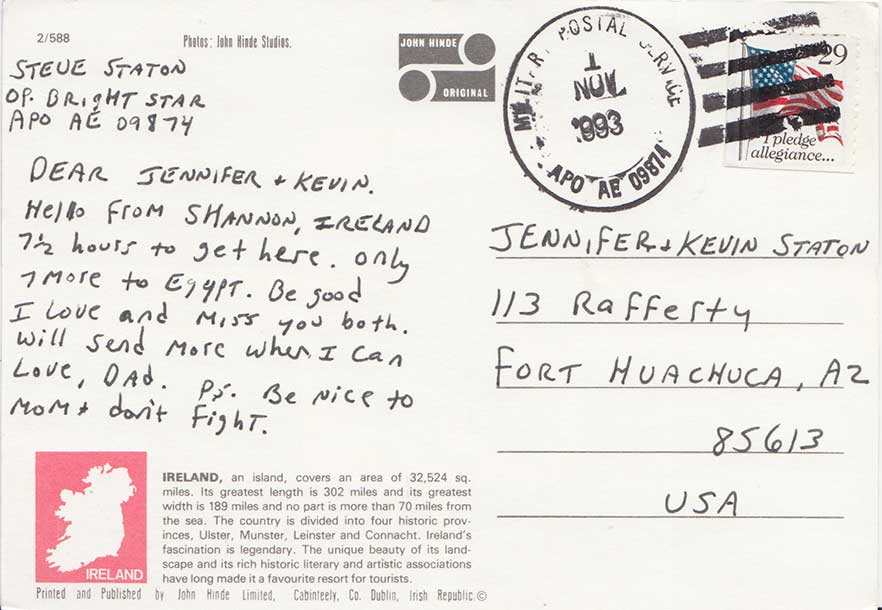 2/588
Photos: John Hinde Studios.
JOHN HINDE
ORIGINAL
MILITARY POSTAL SERVICE
1
NOV
1993
APO AE 09874
29
I pledge
allegiance...
STEVE STATON
OP. BRIGHT STAR
APO AE 09874
DEAR JENNIFER + KEVIN.
Hello From SHANNON, IRELAND
7½ hours to get here. only
7 More to EGYPT. Be good
I Love and Miss you both.
Will send More when I can
Love, DAD. PS. Be nice to
MOM + don't Fight.
JENNIFER + KEVIN STATON
113 Rafferty
FORT HUACHUCA, AZ
85613
USA
IRELAND
IRELAND, an island, covers an area of 32,524 sq.
miles. Its greatest length is 302 miles and its greatest
width is 189 miles and no part is more than 70 miles from
the sea. The country is divided into four historic prov-
inces, Ulster, Munster, Leinster and Connacht. Ireland's
fascination is legendary. The unique beauty of its land-
scape and its rich historic literary and artistic associations
have long made it a favourite resort for tourists.
Printed and Published by John Hinde Limited, Cabinteely, Co. Dublin, Irish Republic.©